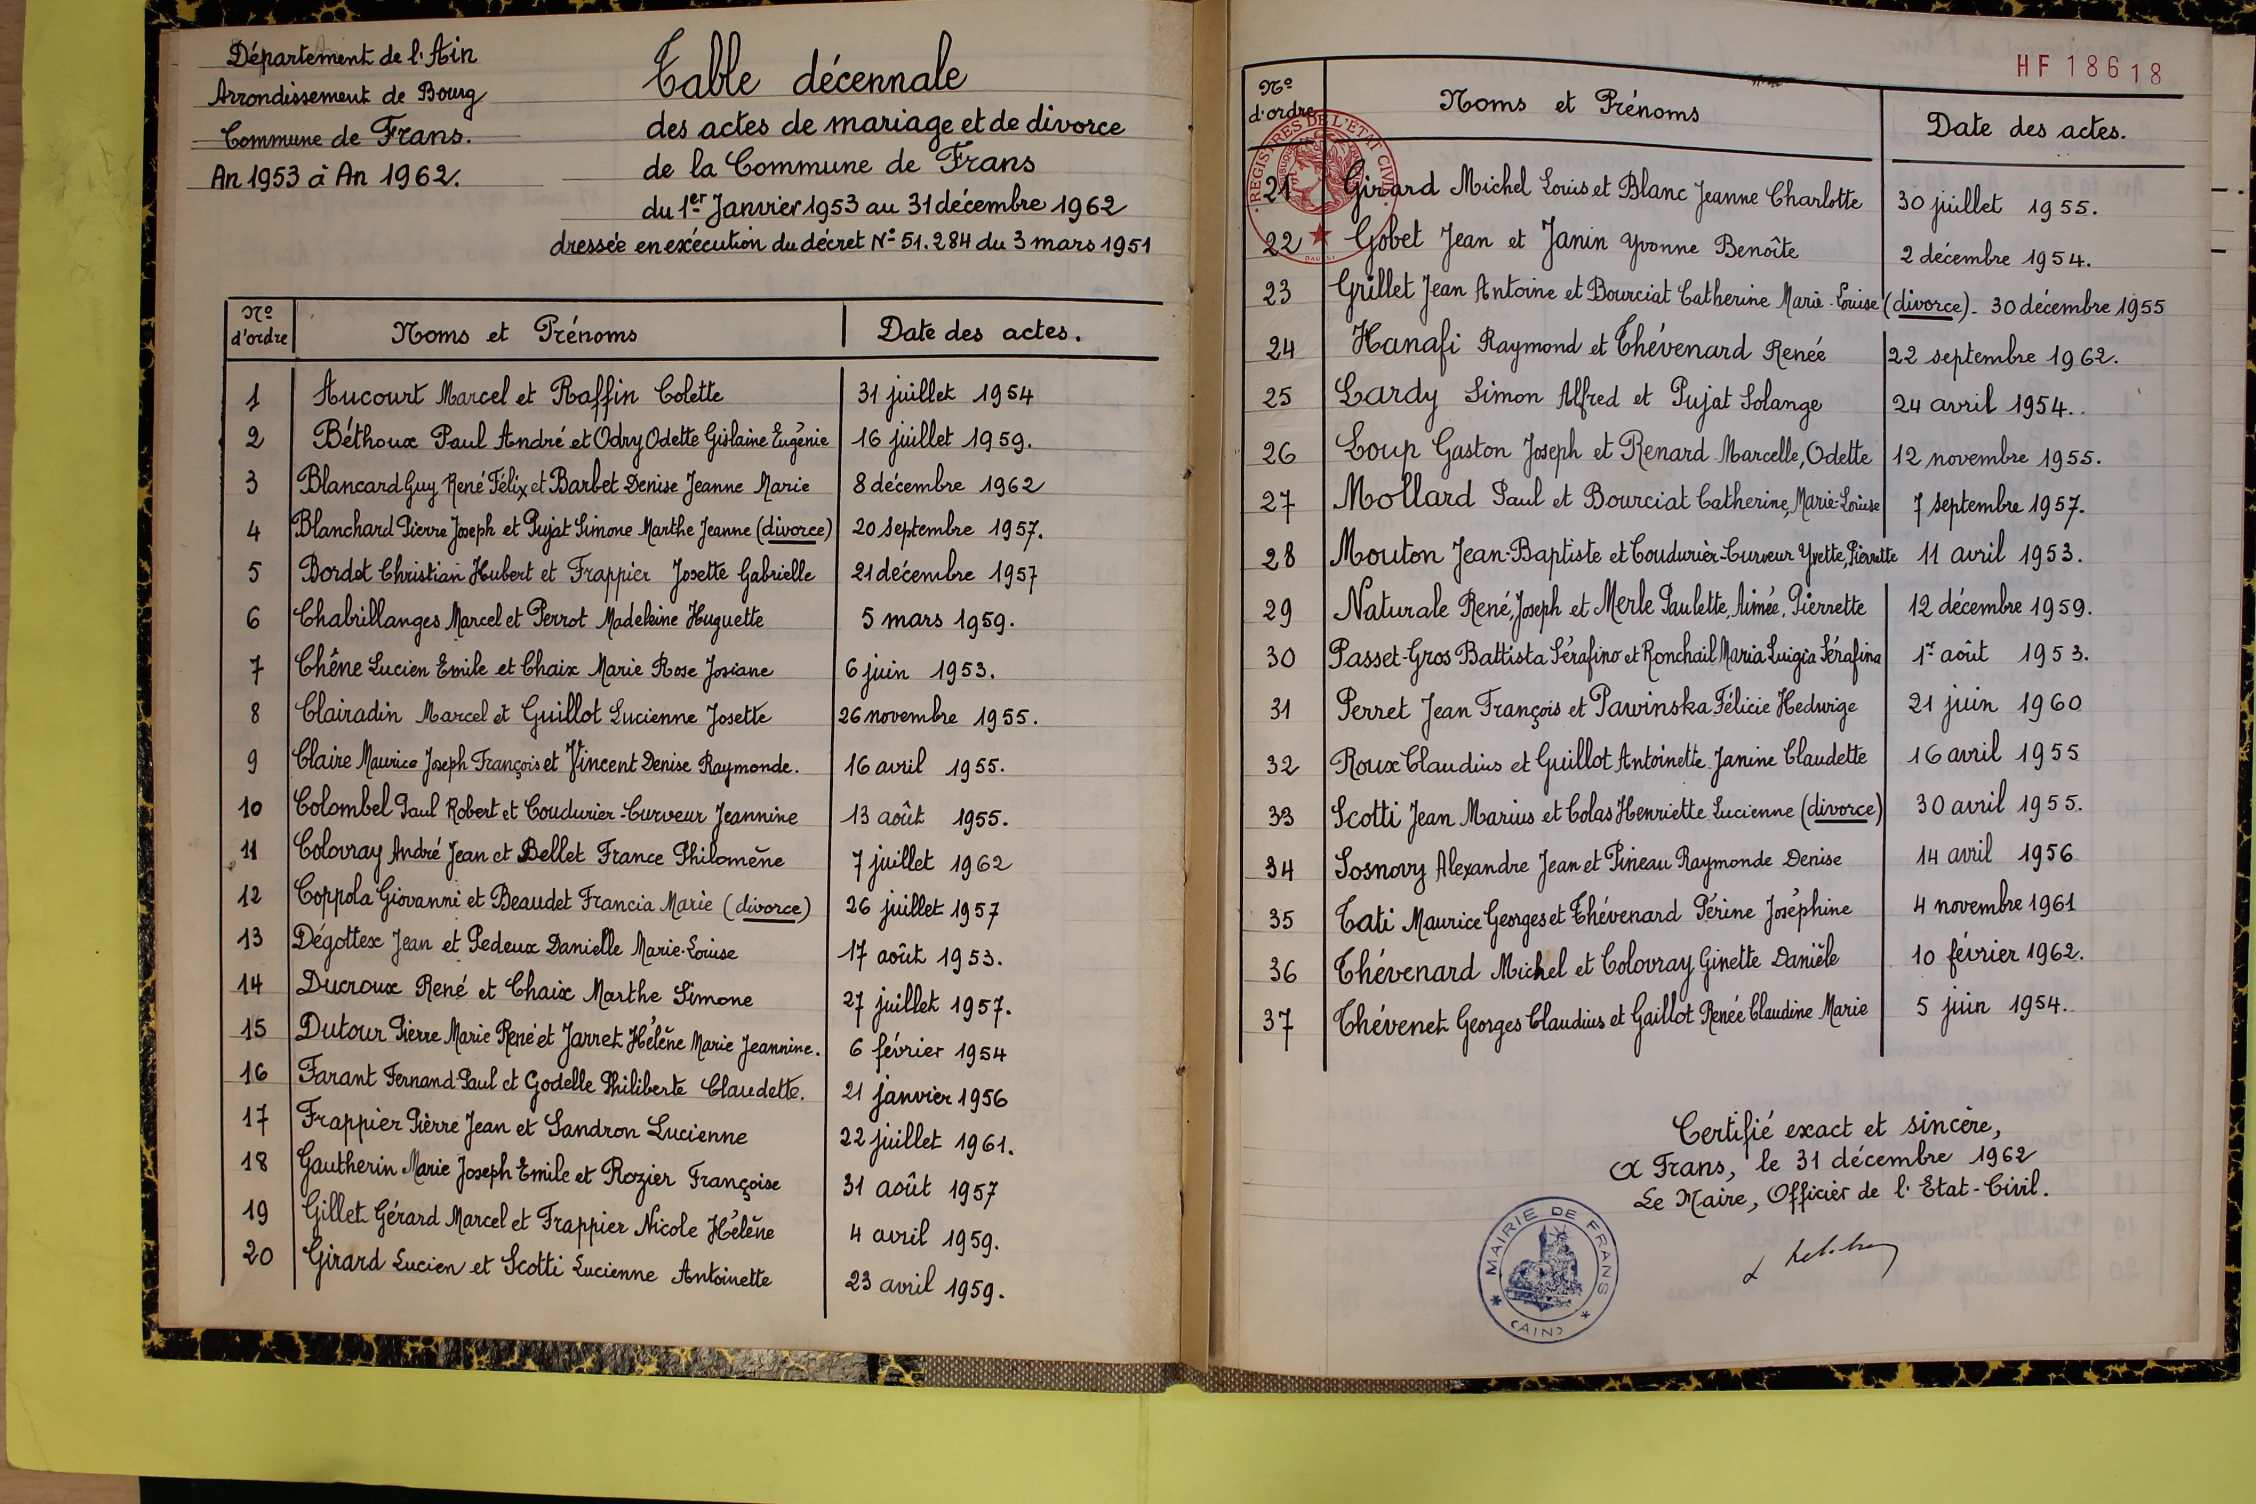 Département de l'Ain
Arrondissement de Bourg
Commune de Frans.
An 1953 à An 1962.
Table décennale
des actes de mariage et de divorce
de la Commune de Frans
du 1er Janvier 1953 au 31 décembre 1962
dressée en exécution du décret N° 51.284 du 3 mars 1951
N° d'ordre Noms et Prénoms Date des actes.
1 Aucourt Marcel et Raffin Colette 31 juillet 1954
2 Béthoux Paul André et Odry Odette Gislaine Eugénie 16 juillet 1959.
3 Blancard Guy René Félix et Barbet Denise Jeanne Marie 8 décembre 1962
4 Blanchard Pierre Joseph et Pujat Simone Marthe Jeanne (divorce) 20 septembre 1957.
5 Bordet Christian Hubert et Frappier Josette Gabrielle 21 décembre 1957
6 Chabrillanges Marcel et Perrot Madeleine Huguette 5 mars 1959.
7 Chêne Lucien Emile et Chaix Marie Rose Josiane 6 juin 1953.
8 Clairadin Marcel et Guillot Lucienne Josette 26 novembre 1955.
9 Claire Maurice Joseph François et Vincent Denise Raymonde. 16 avril 1955.
10 Colombel Paul Robert et Coudurier-Curveur Jeannine 13 août 1955.
11 Colovray André Jean et Bellet France Philomène 7 juillet 1962
12 Coppola Giovanni et Beaudet Francia Marie (divorce) 26 juillet 1957
13 Dégottex Jean et Pedeux Danielle Marie-Louise 17 août 1953.
14 Ducroux René et Chaix Marthe Simone 27 juillet 1957.
15 Dutour Pierre Marie René et Jarret Hélène Marie Jeannine. 6 février 1954
16 Farant Fernand Paul et Godelle Philiberte Claudette. 21 janvier 1956
17 Frappier Pierre Jean et Sandron Lucienne 22 juillet 1961.
18 Gautherin Marie Joseph Emile et Rozier Françoise 31 août 1957
19 Gillet Gérard Marcel et Frappier Nicole Hélène 4 avril 1959.
20 Girard Lucien et Scotti Lucienne Antoinette 23 avril 1959.
HF 18618
N° d'ordre Noms et Prénoms Date des actes.
REGISTRES DE L'ETAT CIVIL
21 Girard Michel Louis et Blanc Jeanne Charlotte 30 juillet 1955.
22 Gobet Jean et Janin Yvonne Benoîte 2 décembre 1954.
23 Grillet Jean Antoine et Bourciat Catherine Marie-Louise (divorce). 30 décembre 1955
24 Hanafi Raymond et Thévenard Renée 22 septembre 1962.
25 Lardy Simon Alfred et Pujat Solange 24 avril 1954.
26 Loup Gaston Joseph et Renard Marcelle, Odette 12 novembre 1955.
27 Mollard Paul et Bourciat Catherine, Marie-Louise 7 septembre 1957.
28 Mouton Jean-Baptiste et Coudurier-Curveur Yvette, Pierrette 11 avril 1953.
29 Naturale René, Joseph et Merle Paulette, Aimée, Pierrette 12 décembre 1959.
30 Passet-Gros Battista Sérafino et Ronchail Maria Luigia Sérafina 1er août 1953.
31 Perret Jean François et Pawinska Félicie Hedwige 21 juin 1960
32 Roux Claudius et Guillot Antoinette Janine Claudette 16 avril 1955
33 Scotti Jean Marius et Colas Henriette Lucienne (divorce) 30 avril 1955.
34 Sosnovy Alexandre Jean et Pineau Raymonde Denise 14 avril 1956
35 Tati Maurice Georges et Thévenard Périne Joséphine 4 novembre 1961
36 Thévenard Michel et Colovray Ginette Danièle 10 février 1962.
37 Thévenet Georges Claudius et Gaillot Renée Claudine Marie 5 juin 1954.
Certifié exact et sincère,
A Frans, le 31 décembre 1962
Le Maire, Officier de l'Etat-Civil.
MAIRIE DE FRANS
(AIN)